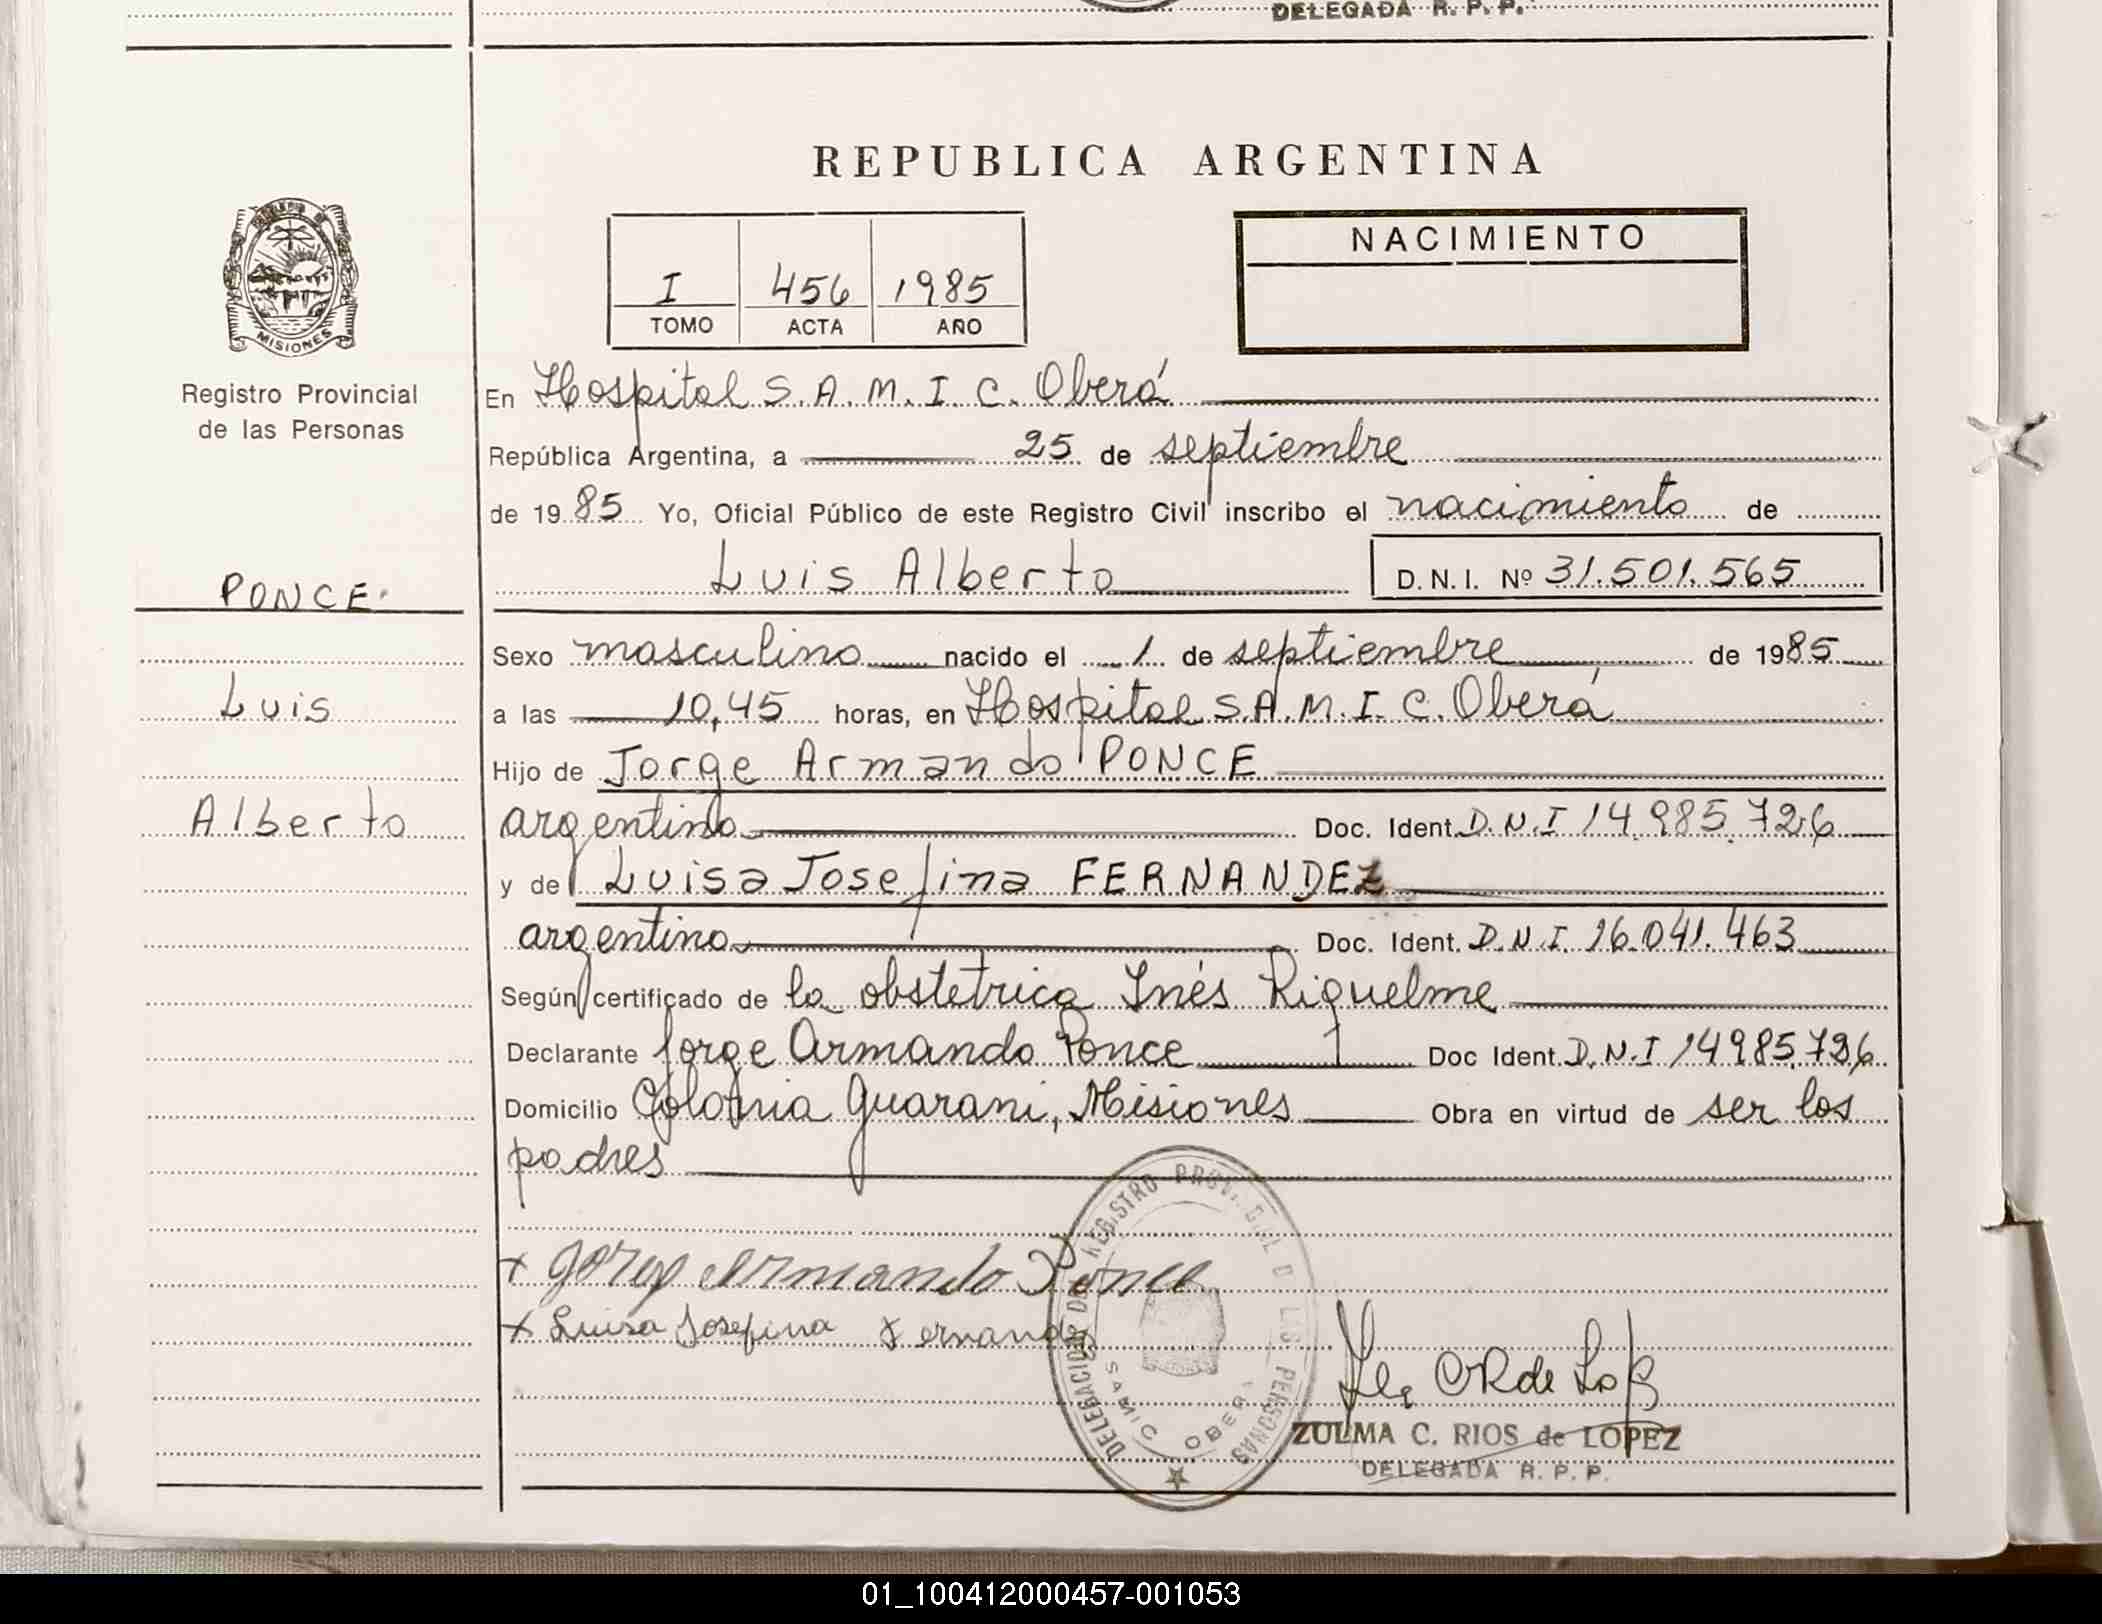 DELEGADA R. P. P.
REPUBLICA ARGENTINA
I 456 1985
TOMO ACTA AÑO
NACIMIENTO
MISIONES
Registro Provincial
de las Personas
PONCE
Luis
Alberto
En Hospital S.A.M.I.C. Oberá
República Argentina, a 25 de septiembre
de 1985 Yo, Oficial Público de este Registro Civil inscribo el nacimiento de
Luis Alberto D.N.I. Nº 31.501.565
Sexo masculino nacido el 1 de septiembre de 1985
a las 10,45 horas, en Hospital S.A.M.I.C. Oberá
Hijo de Jorge Armando PONCE
argentino Doc. Ident. D.N.I 14.985.726
y de Luisa Josefina FERNANDEZ
argentina Doc. Ident. D.N.I. 16.041.463
Según certificado de la obstetrica Inés Riquelme
Declarante Jorge Armando Ponce Doc Ident. D.N.I 14985.726
Domicilio Colonia Guarani, Misiones Obra en virtud de ser los
padres
x Jorge Armando Ponce
x Luisa Josefina Fernandez
DELEGACION DEL REGISTRO PROVINCIAL DE LAS PERSONAS
SAMIC OBERA
ZULMA C. RIOS de LOPEZ
DELEGADA R. P. P.
01_100412000457-001053